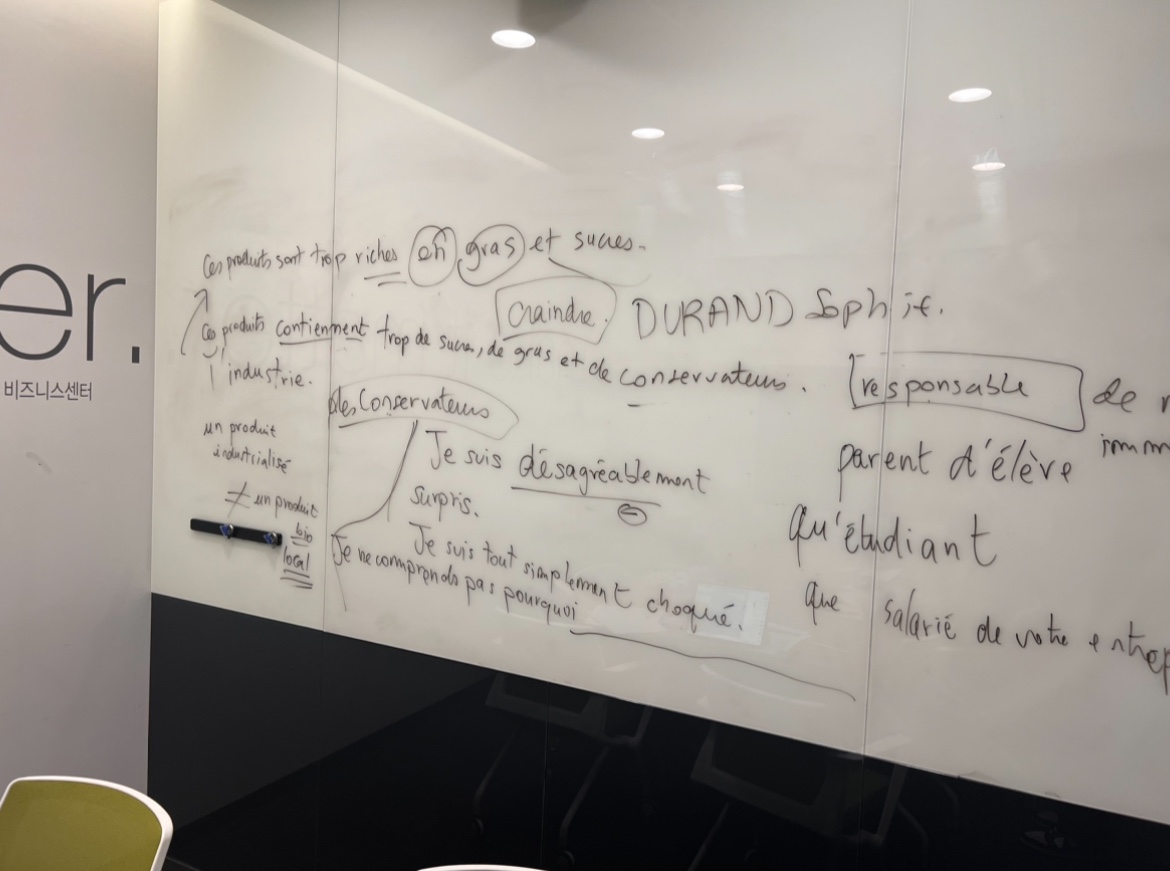 er.
비즈니스센터
Ces produits sont trop riches en gras et sucres.
craindre.
DURAND Sophie.
Ces produits contiennent trop de sucre, de gras et de conservateurs.
l'industrie.
des Conservateurs
un produit
industrialisé
≠ un produit
bio
local
Je suis désagréablement
surpris.
Je suis tout simplement choqué.
Je ne comprends pas pourquoi
responsable de
parent d'élève
qu'étudiant
que salarié de votre